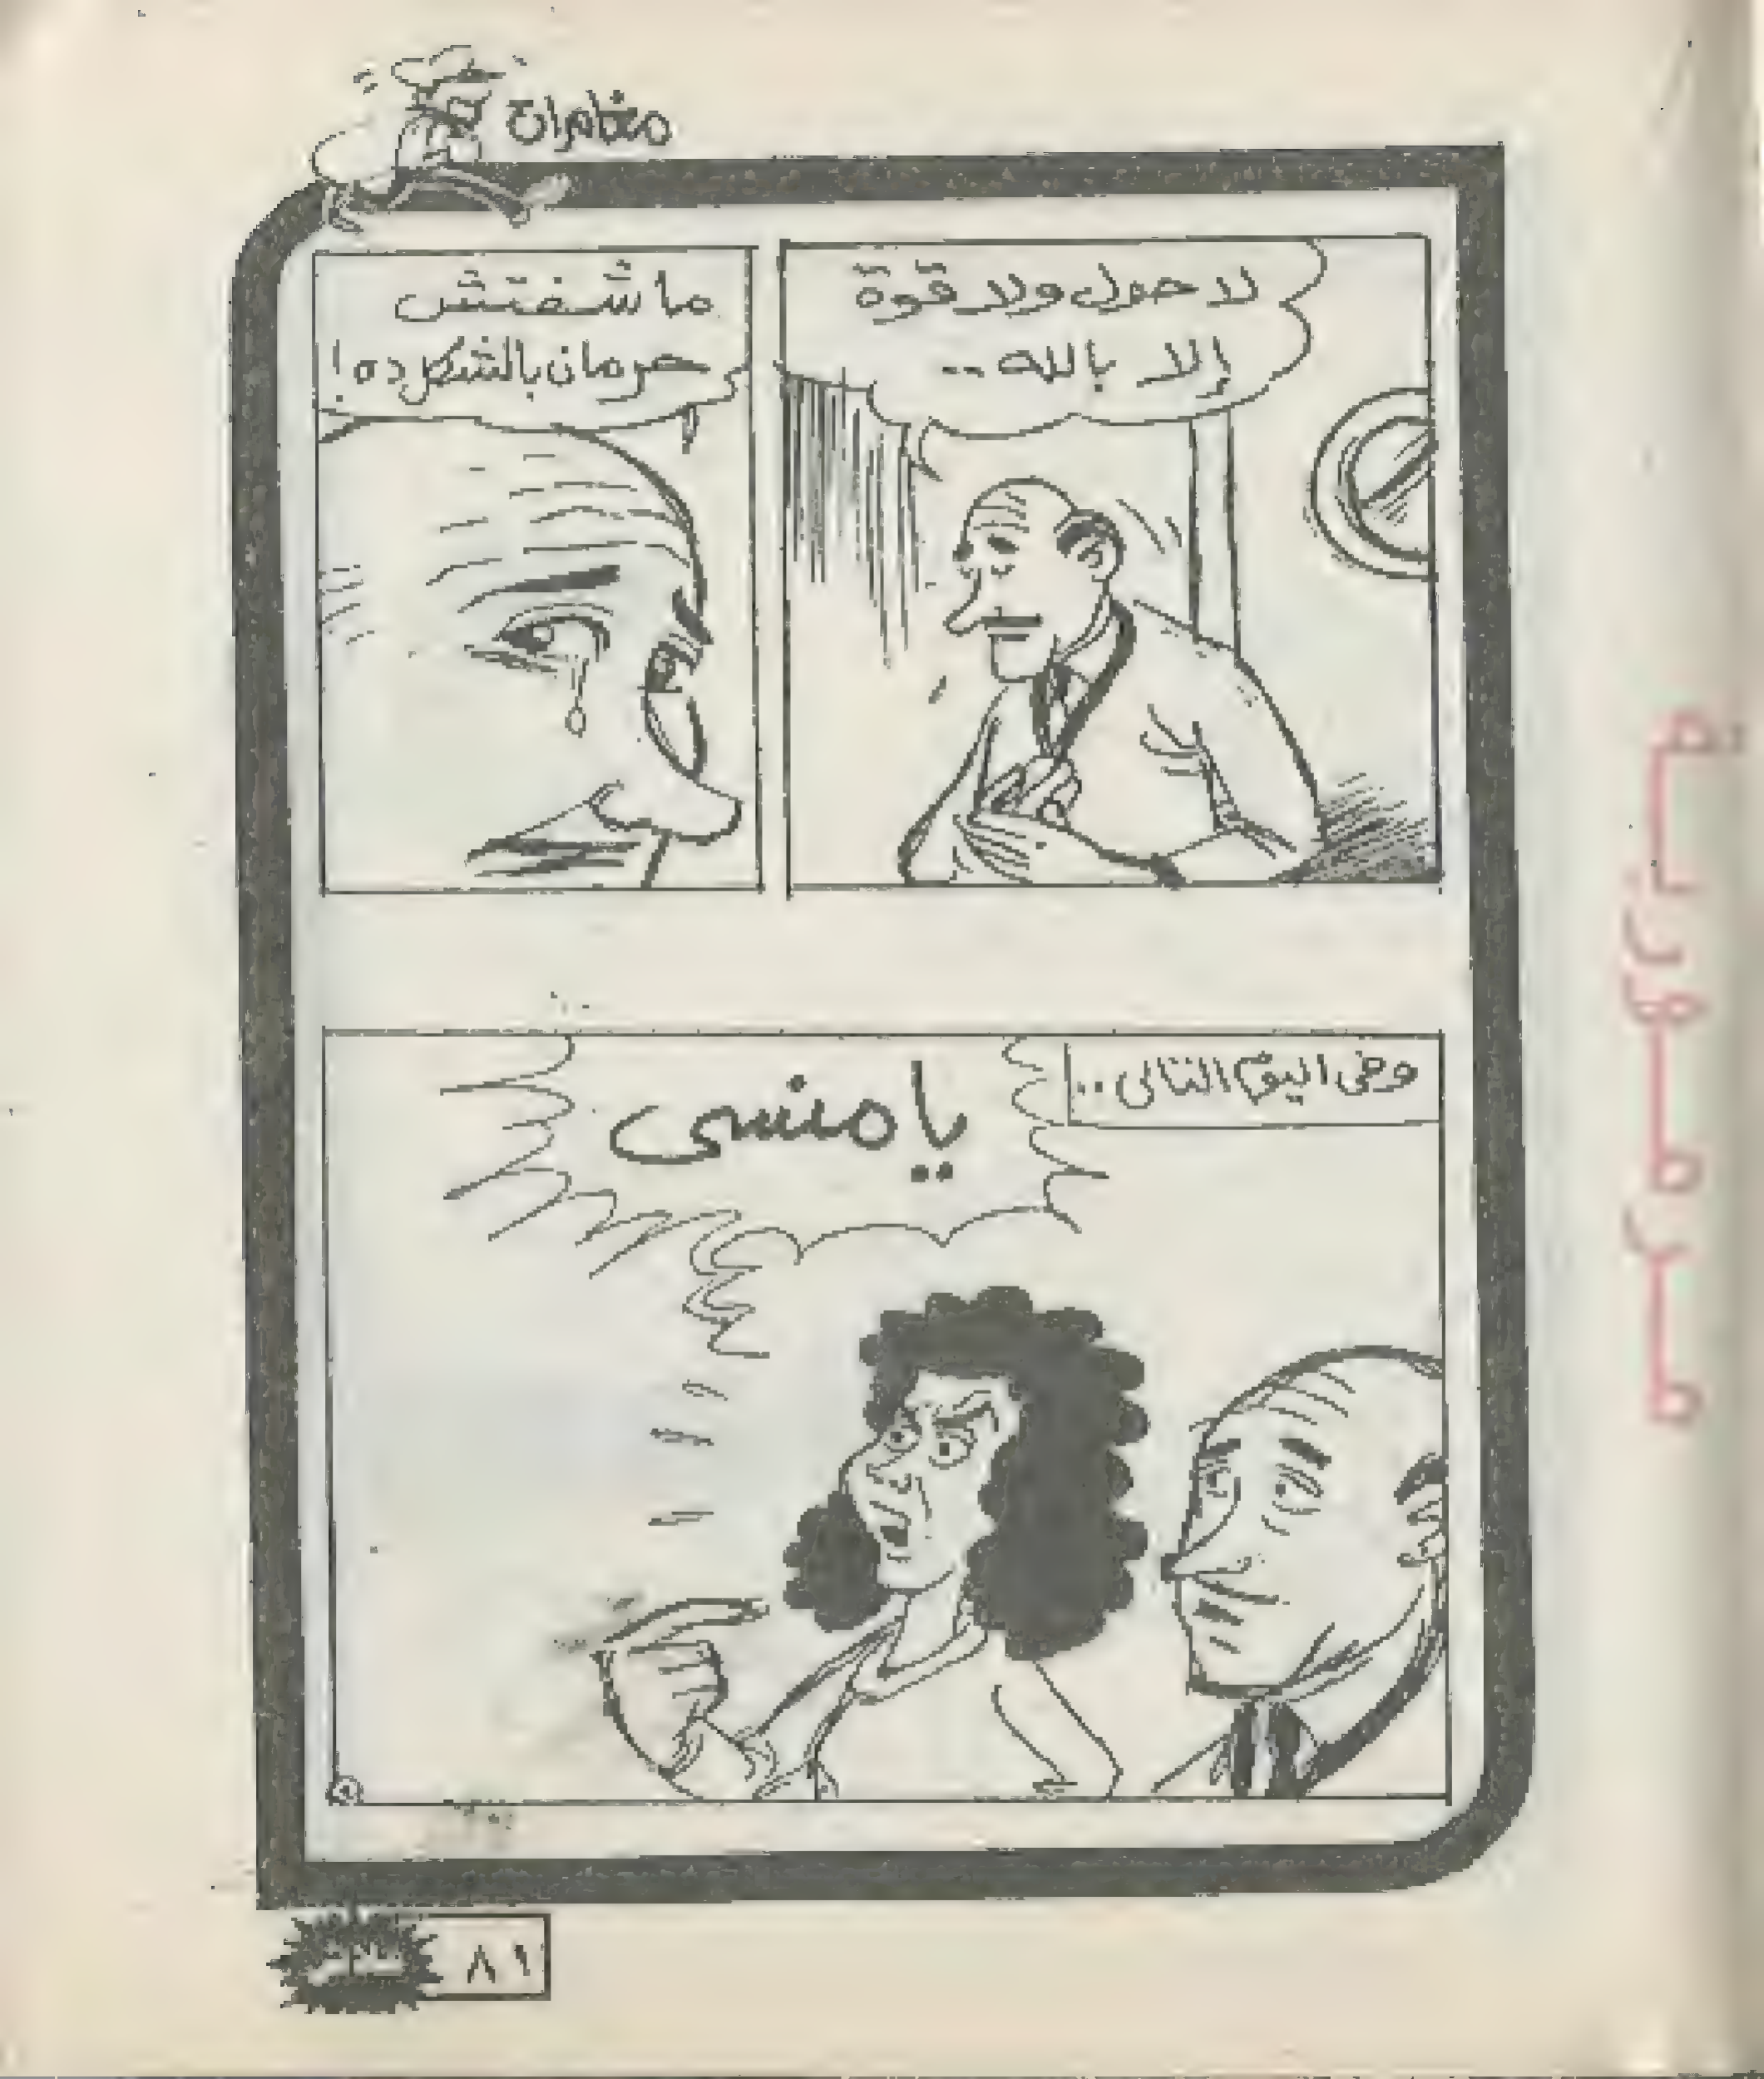 مغامرات
لا حول ولا قوة
إلا بالله ..
ما شفتش
حرمان بالشكل ده !
وفى اليوم التالى ..
يا منسى
٨١